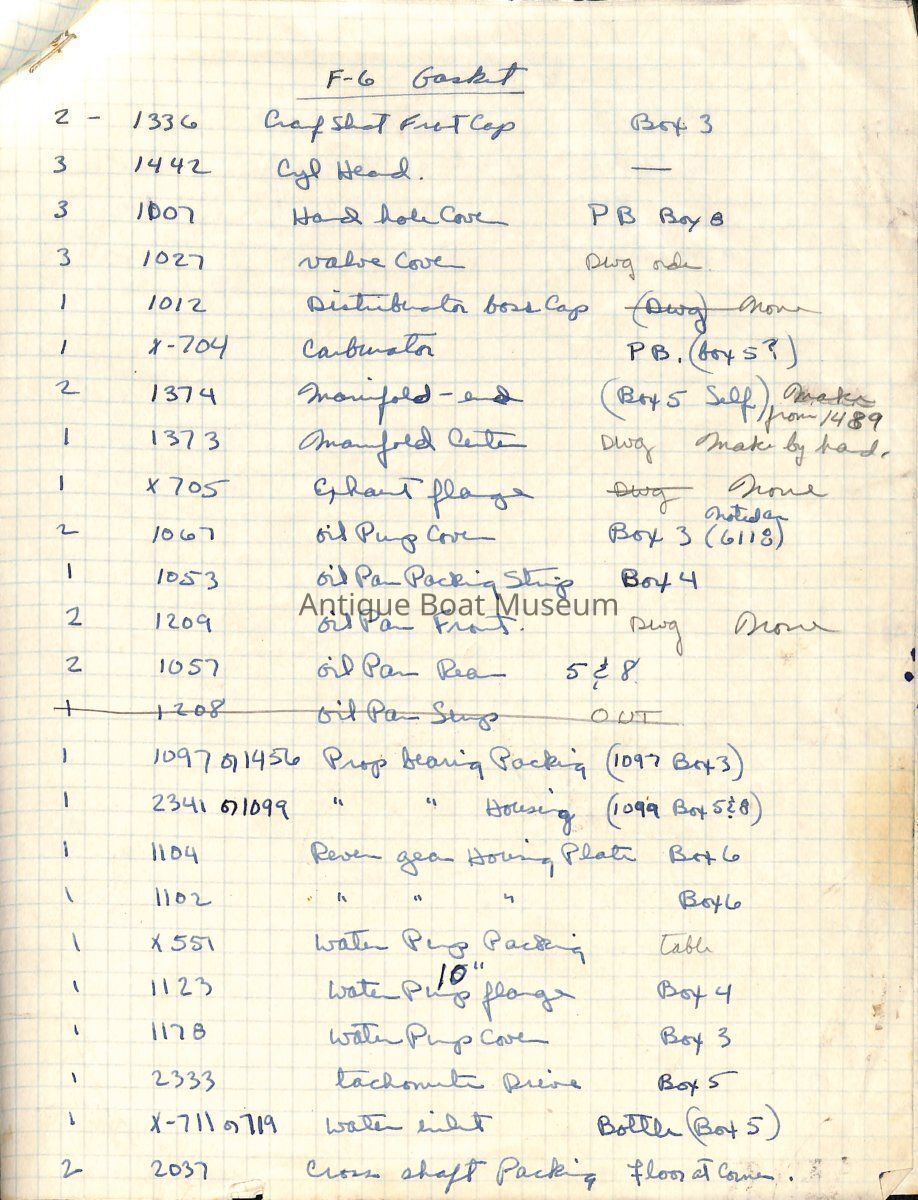 F-6 Gasket
2 - 1336 Craf Shat Frut Cap Box 3
3 1442 Cyl Head. —
3 1007 Hand hole Cover PB Box 8
3 1027 valve Cover Dwg order
1 1012 Distributor boss Cap (Dwg) None
1 X-704 Carburator PB. (box 5?)
2 1374 Manifold-end (Box 5 Self) Make
from 1489
1 1373 Manifold Center Dwg Make by hand.
1 X705 Exhaust flange Dwg None
2 1067 oil Pump Cover Box 3 (6118)
1 1053 oil Pan Packing Strip Box 4
Antique Boat Museum
2 1209 oil Pan Front. Dwg None
2 1057 oil Pan Rear 5 & 8
1 1208 oil Pan Strip OUT
1 1097 or 1456 Prop bearing Packing (1097 Box 3)
1 2341 or 1099 " " Housing (1099 Box 5&8)
1 1104 Rever gear Housing Plate Box 6
1 1102 " " " Box 6
1 X551 Water Pump Packing table
10"
1 1123 Water Pump flange Box 4
1 1178 Water Pump Cover Box 3
1 2333 tachometer Drive Box 5
1 X-711 or 719 Water inlet Bottle (Box 5)
2 2037 Cross shaft Packing Floor at Corner.